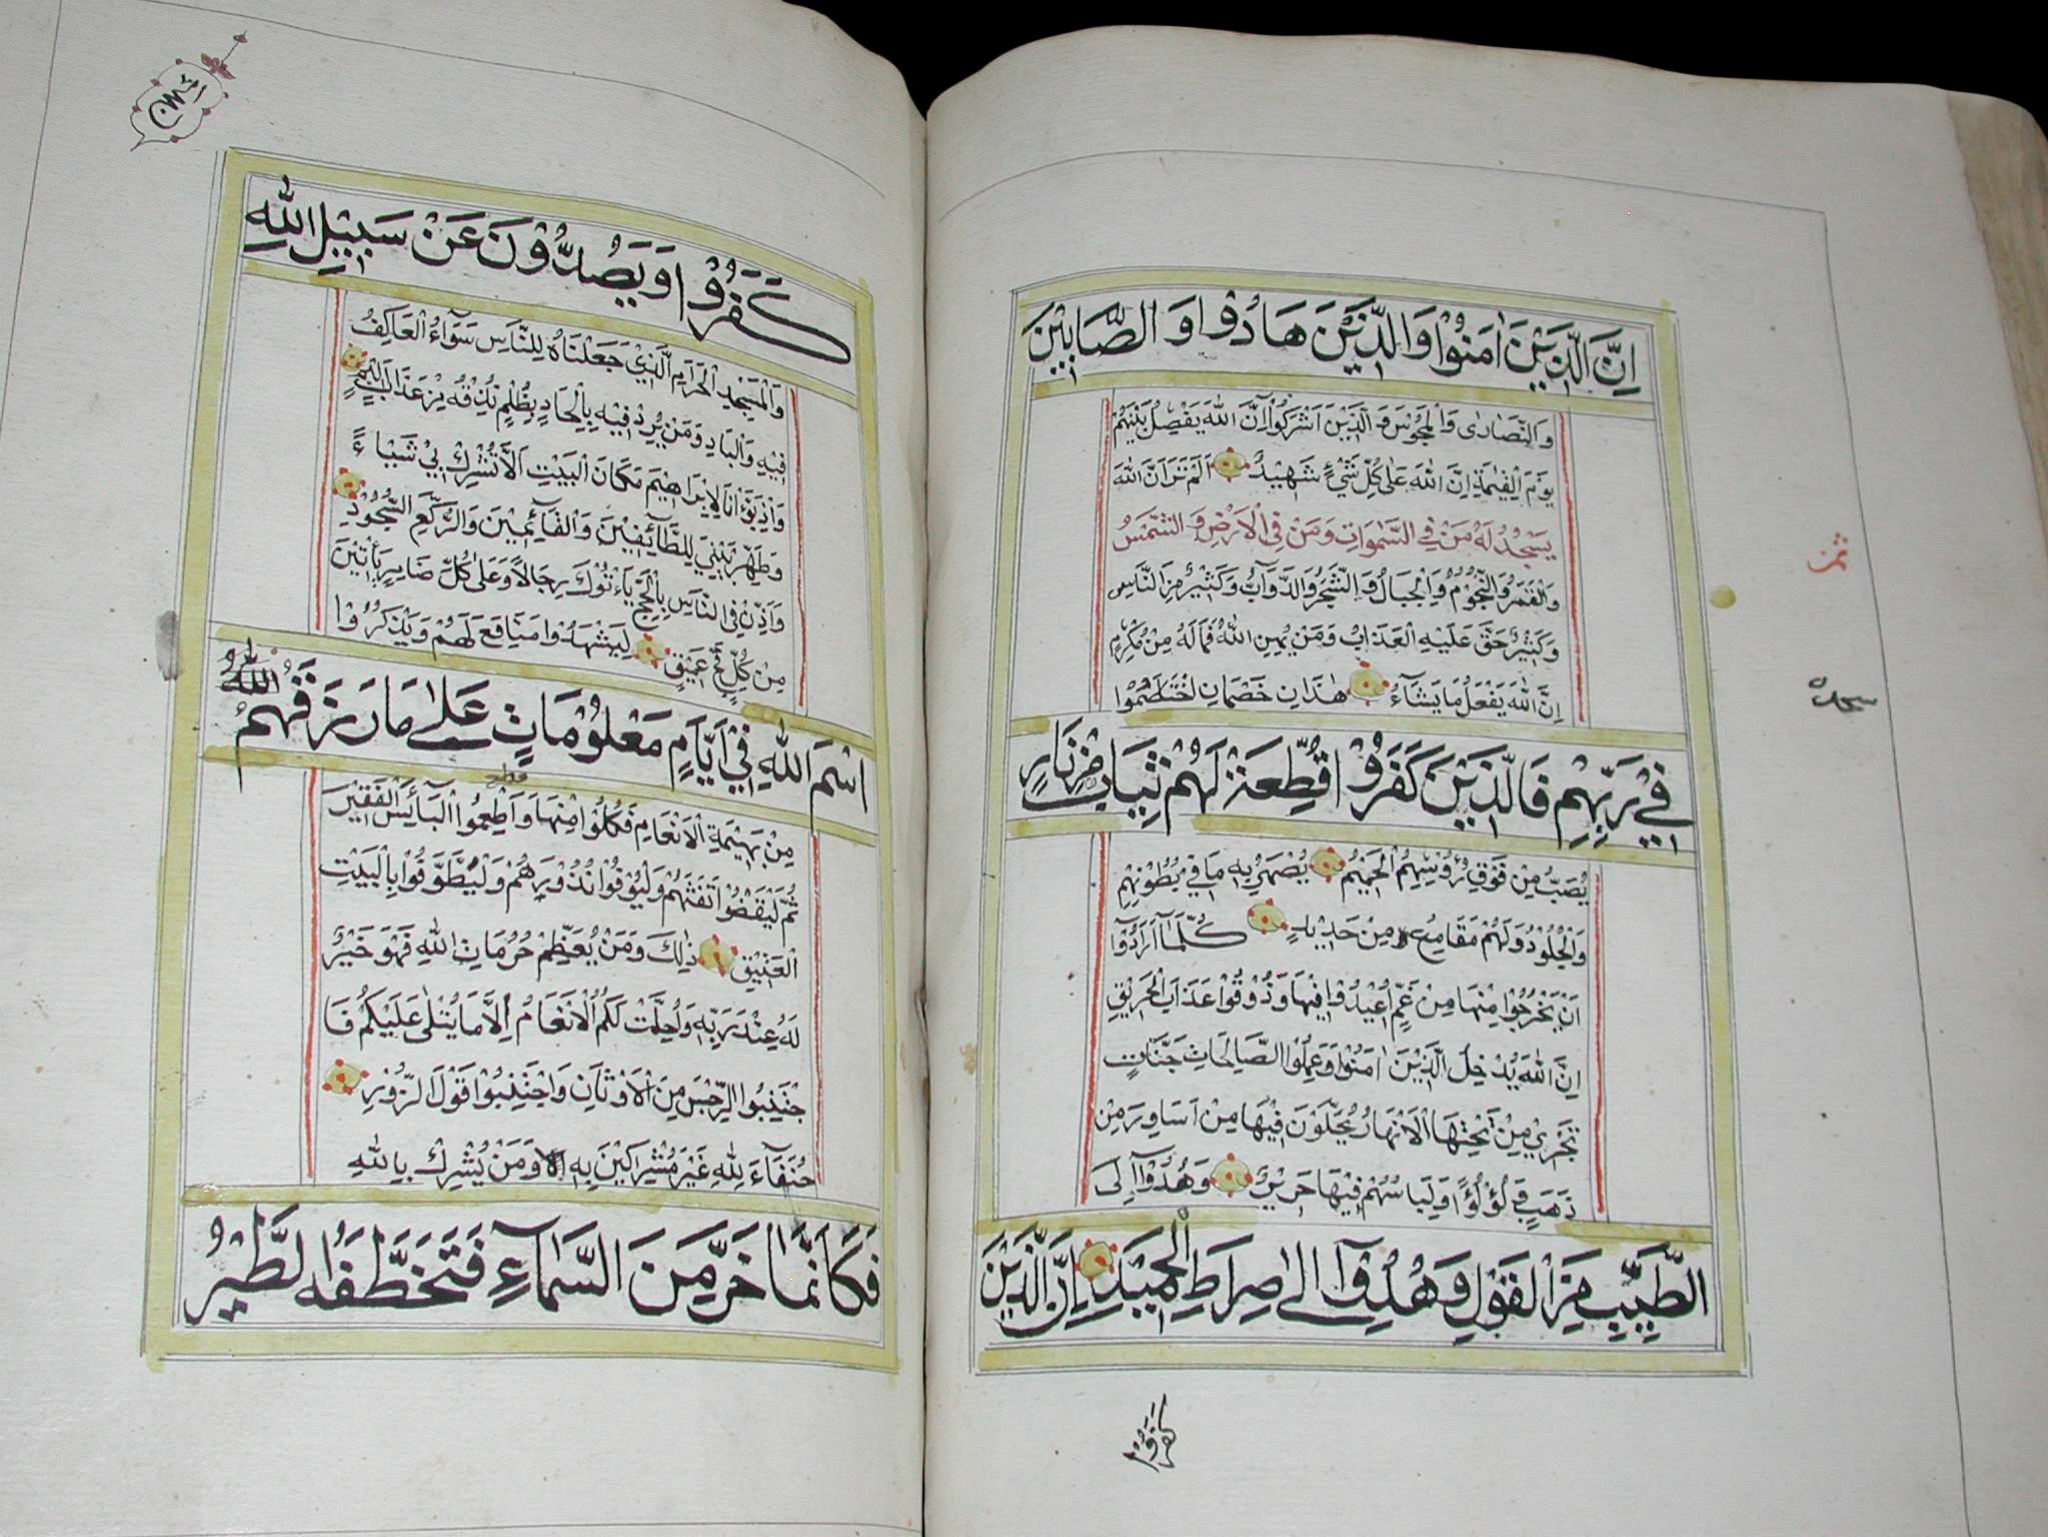 اِنَّ الَّذِيْنَ اٰمَنُوْا وَالَّذِيْنَ هَادُوْا وَ الصَّابِيْنَ
وَالنَّصَارٰى وَالْمَجُوْسَ وَ الَّذِيْنَ اَشْرَكُوْا اِنَّ اللهَ يَفْصِلُ بَيْنَهُمْ
يَوْمَ الْقِيٰمَةِ اِنَّ اللهَ عَلٰى كُلِّ شَيْءٍ شَهِيْدٌ اَلَمْ تَرَ اَنَّ اللهَ
يَسْجُدُ لَهٗ مَنْ فِي السَّمٰوَاتِ وَمَنْ فِي الْاَرْضِ وَ الشَّمْسُ
وَالْقَمَرُ وَالنُّجُوْمُ وَالْجِبَالُ وَالشَّجَرُ وَالدَّوَآبُّ وَكَثِيْرٌ مِنَ النَّاسِ
وَكَثِيْرٌ حَقَّ عَلَيْهِ الْعَذَابُ وَمَنْ يُهِنِ اللهُ فَمَالَهٗ مِنْ مُكْرِمٍ
اِنَّ اللهَ يَفْعَلُ مَا يَشَآءُ هٰذَانِ خَصْمَانِ اخْتَصَمُوْا
فِيْ رَبِّهِمْ فَالَّذِيْنَ كَفَرُوْا قُطِّعَتْ لَهُمْ ثِيَابٌ مِنْ نَارٍ
يُصَبُّ مِنْ فَوْقِ رُؤُسِهِمُ الْحَمِيْمُ يُصْهَرُ بِهٖ مَا فِيْ بُطُوْنِهِمْ
وَالْجُلُوْدُ وَلَهُمْ مَقَامِعُ مِنْ حَدِيْدٍ كُلَّمَآ اَرَادُوْآ
اَنْ يَخْرُجُوْا مِنْهَا مِنْ غَمٍّ اُعِيْدُوْا فِيْهَا وَذُوْقُوْا عَذَابَ الْحَرِيْقِ
اِنَّ اللهَ يُدْخِلُ الَّذِيْنَ اٰمَنُوْا وَعَمِلُوا الصَّالِحَاتِ جَنَّاتٍ
تَجْرِيْ مِنْ تَحْتِهَا الْاَنْهَارُ يُحَلَّوْنَ فِيْهَا مِنْ اَسَاوِرَ مِنْ
ذَهَبٍ وَ لُؤْلُؤًا وَلِبَاسُهُمْ فِيْهَا حَرِيْرٌ وَهُدُوْآ اِلَى
الطَّيِّبِ مِنَ الْقَوْلِ وَهُدُوْآ اِلٰى صِرَاطِ الْحَمِيْدِ اِنَّ الَّذِيْنَ
ثمن
سجدة
كَفَرُوْا
كَفَرُوْا وَيَصُدُّوْنَ عَنْ سَبِيْلِ اللهِ
وَالْمَسْجِدِ الْحَرَامِ الَّذِيْ جَعَلْنَاهُ لِلنَّاسِ سَوَآءُ الْعَاكِفُ
فِيْهِ وَالْبَادِ وَمَنْ يُرِدْ فِيْهِ بِاِلْحَادٍ بِظُلْمٍ نُذِقْهُ مِنْ عَذَابٍ اَلِيْمٍ
وَاِذْ بَوَّءْنَا لِاِبْرَاهِيْمَ مَكَانَ الْبَيْتِ اَلَّا تُشْرِكْ بِيْ شَيْاءً
وَطَهِّرْ بَيْتِيَ لِلطَّآئِفِيْنَ وَالْقَآئِمِيْنَ وَالرُّكَّعِ السُّجُوْدِ
وَاَذِّنْ فِي النَّاسِ بِالْحَجِّ يَاْتُوْكَ رِجَالًا وَعَلٰى كُلِّ ضَامِرٍ يَاْتِيْنَ
مِنْ كُلِّ فَجٍّ عَمِيْقٍ لِيَشْهَدُوْا مَنَافِعَ لَهُمْ وَيَذْكُرُوْا
اسْمَ اللهِ فِيْ اَيَّامٍ مَعْلُوْمَاتٍ عَلٰى مَا رَزَقَهُمُ اللهُ
مِنْ بَهِيْمَةِ الْاَنْعَامِ فَكُلُوْا مِنْهَا وَاَطْعِمُوا الْبَآئِسَ الْفَقِيْرَ
ثُمَّ لْيَقْضُوْا تَفَثَهُمْ وَلْيُوْفُوْا نُذُوْرَهُمْ وَلْيَطَّوَّفُوْا بِالْبَيْتِ
الْعَتِيْقِ ذٰلِكَ وَمَنْ يُعَظِّمْ حُرُمَاتِ اللهِ فَهُوَ خَيْرٌ
لَهٗ عِنْدَ رَبِّهٖ وَاُحِلَّتْ لَكُمُ الْاَنْعَامُ اِلَّا مَا يُتْلٰى عَلَيْكُمْ فَا
جْتَنِبُوا الرِّجْسَ مِنَ الْاَوْثَانِ وَاجْتَنِبُوْا قَوْلَ الزُّوْرِ
حُنَفَآءَ لِلّٰهِ غَيْرَ مُشْرِكِيْنَ بِهٖ وَمَنْ يُشْرِكْ بِاللهِ
فَكَاَنَّمَا خَرَّ مِنَ السَّمَآءِ فَتَخَطَّفَهُ الطَّيْرُ